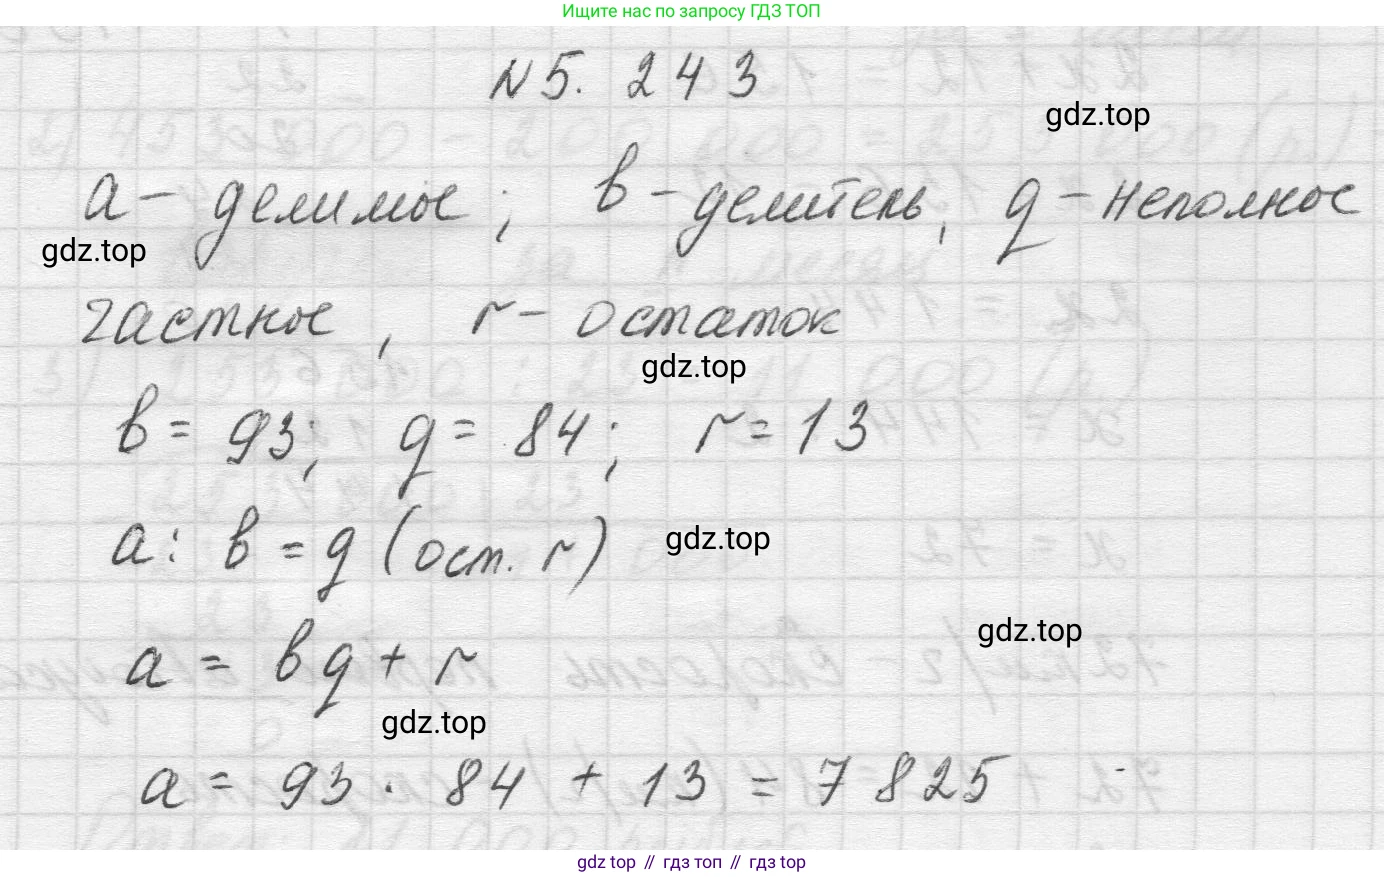 Ищите нас по запросу ГДЗ ТОП
№5.243
gdz.top
a – делимое; в – делитель, q – неполное
gdz.top
частное, r – остаток
gdz.top
в = 93; q = 84; r = 13
a : в = q (ост. r)
gdz.top
a = вq + r
gdz.top
gdz.top
a = 93 · 84 + 13 = 7825
gdz top // гдз топ // gdz top